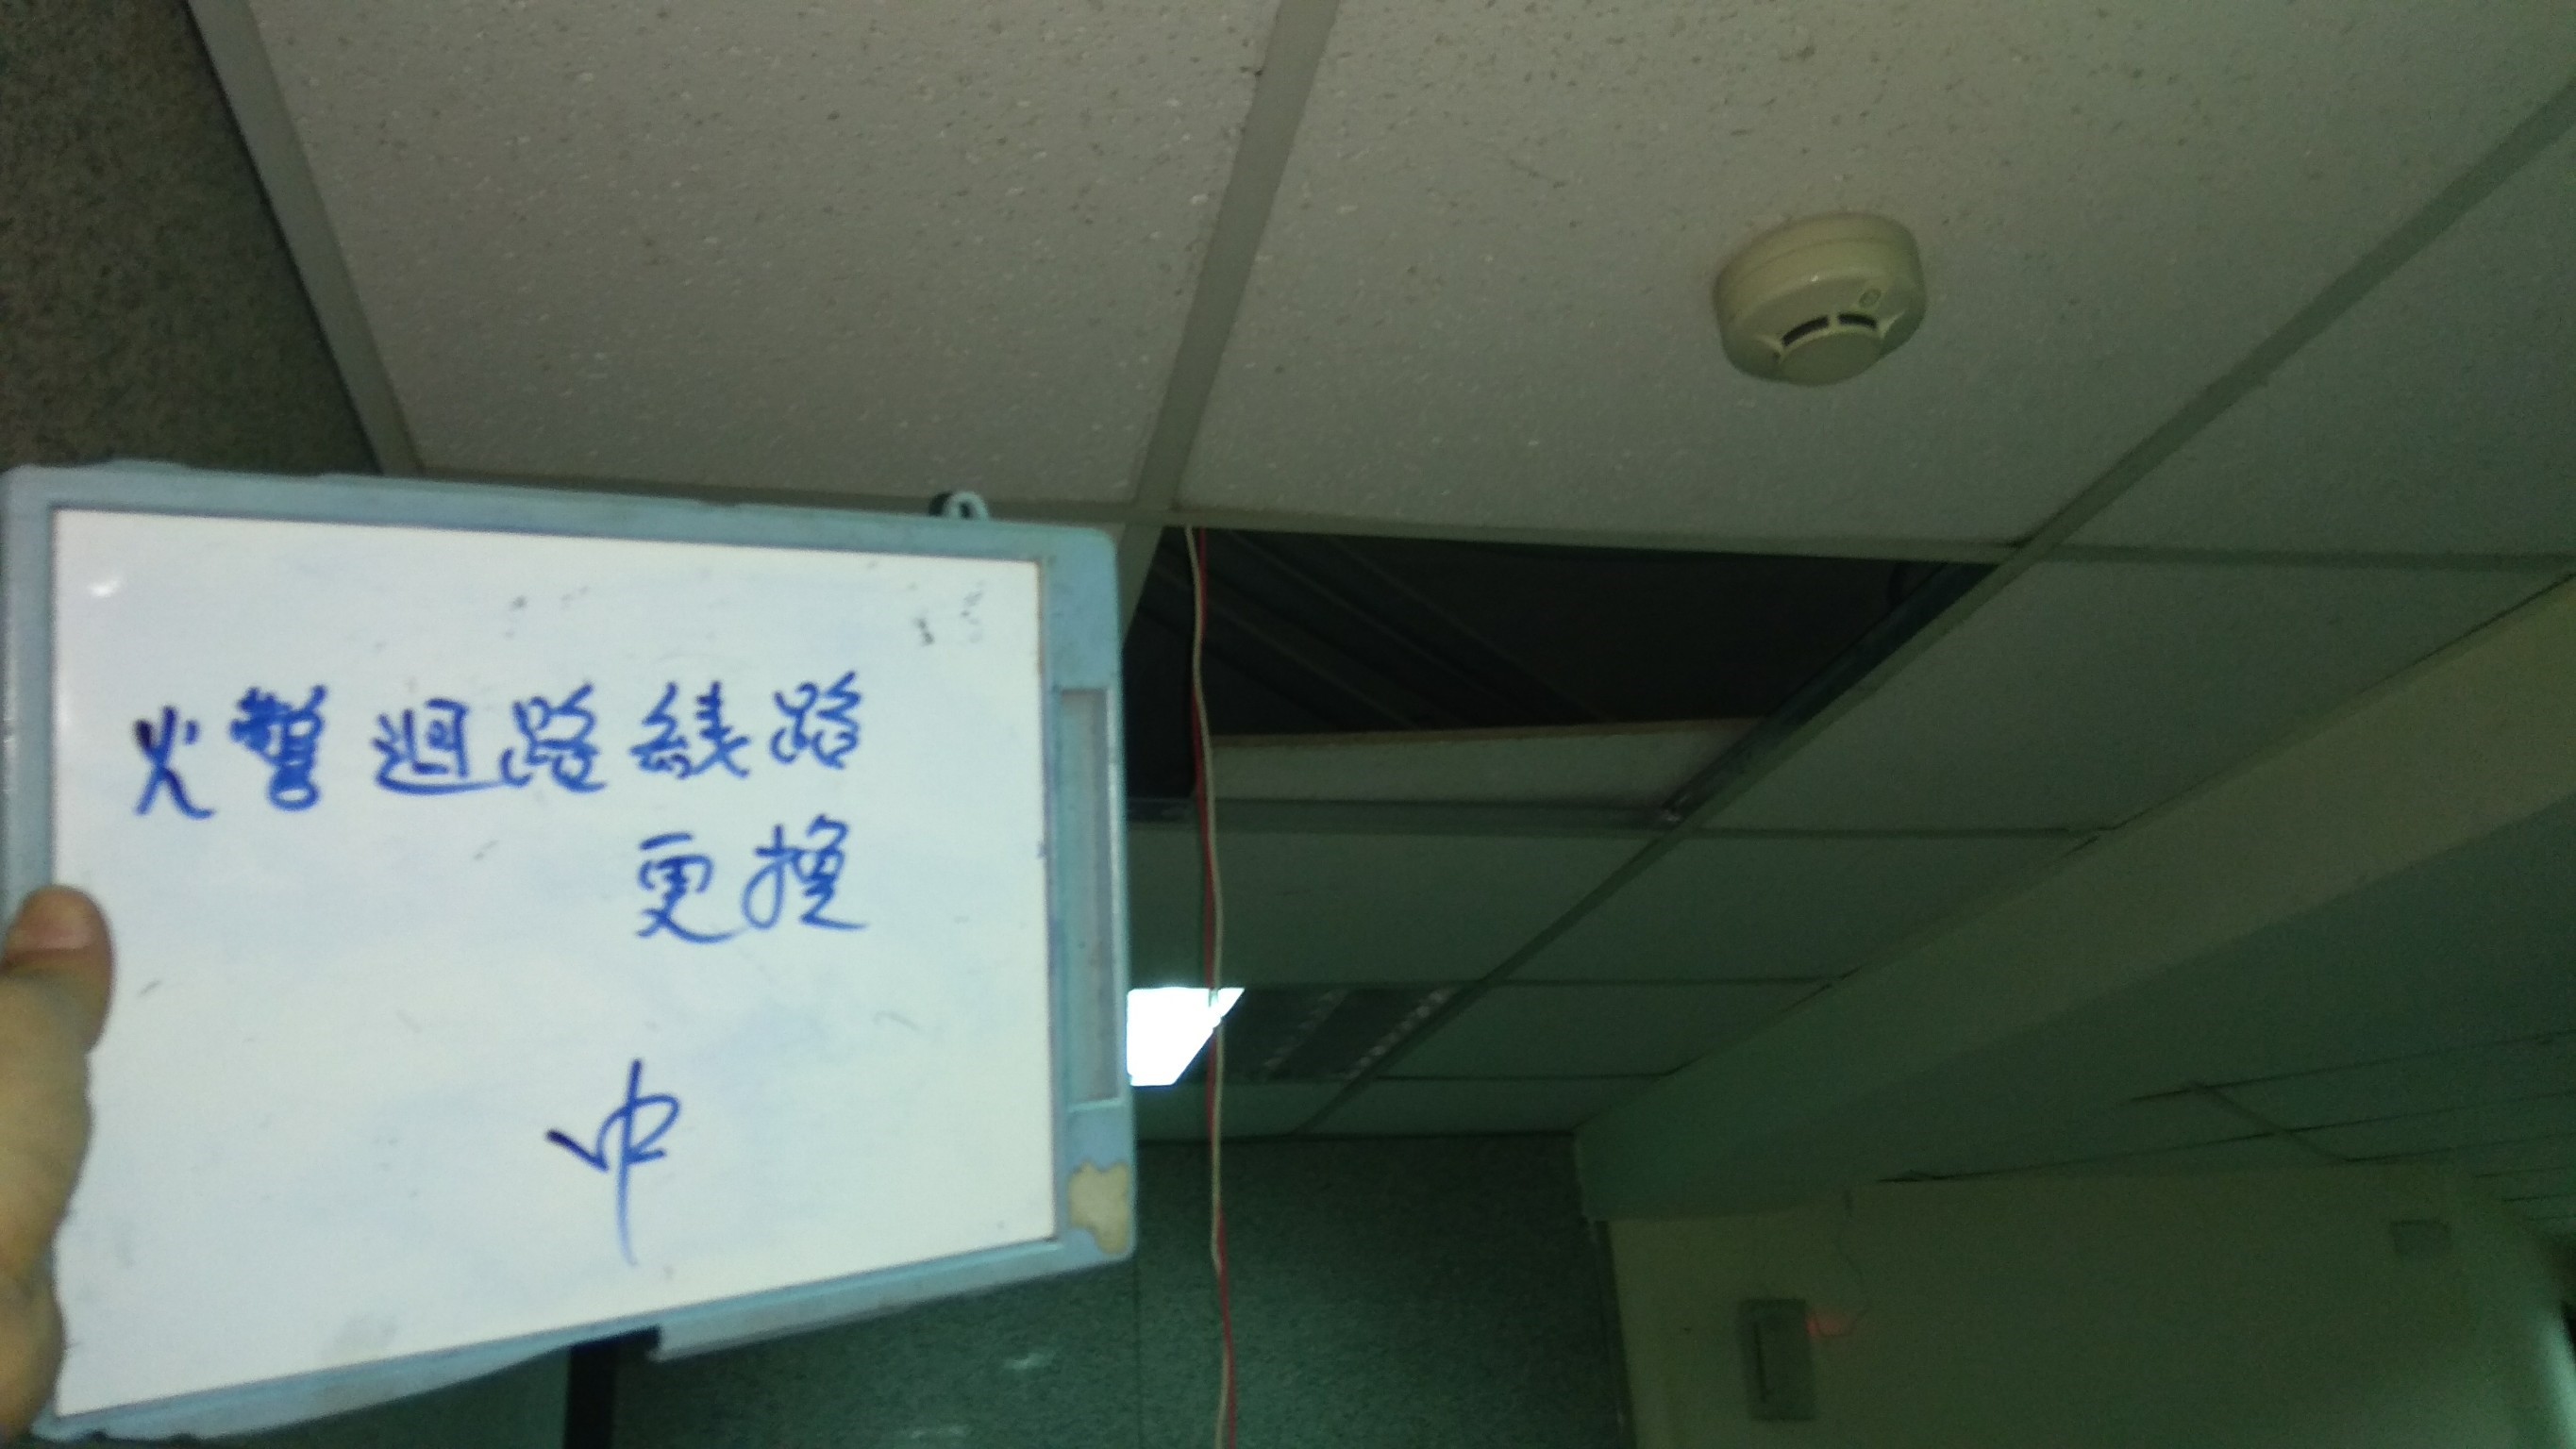 火警迴路線路
更換
中